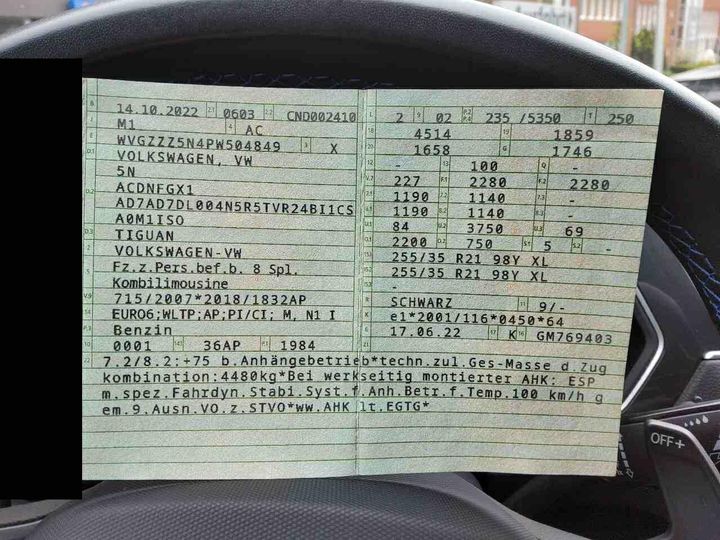 14.10.2022 0603 CND002410
M1 AC
WVGZZZ5N4PW504849 X
VOLKSWAGEN, VW
5N
ACDNFGX1
AD7AD7DL004N5R5TVR24BI1CS
A0M1ISO
TIGUAN
VOLKSWAGEN-VW
Fz.z.Pers.bef.b. 8 Spl.
Kombilimousine
715/2007*2018/1832AP
EURO6;WLTP;AP;PI/CI; M, N1 I
Benzin
0001 36AP 1984
2 02 235 /5350 250
4514 1859
1658 1746
- 100 -
227 2280 2280
1190 1140 -
1190 1140 -
84 3750 69
2200 750 5 -
255/35 R21 98Y XL
255/35 R21 98Y XL
-
SCHWARZ 9/-
e1*2001/116*0450*64
17.06.22 K GM769403
7.2/8.2:+75 b.Anhängebetrieb*techn.zul.Ges-Masse d.Zug
kombination:4480kg*Bei werkseitig montierter AHK: ESP
m.spez.Fahrdyn.Stabi.Syst.f.Anh.Betr.f.Temp.100 km/h g
em.9.Ausn.VO.z.STVO*ww.AHK lt.EGTG*
OFF+